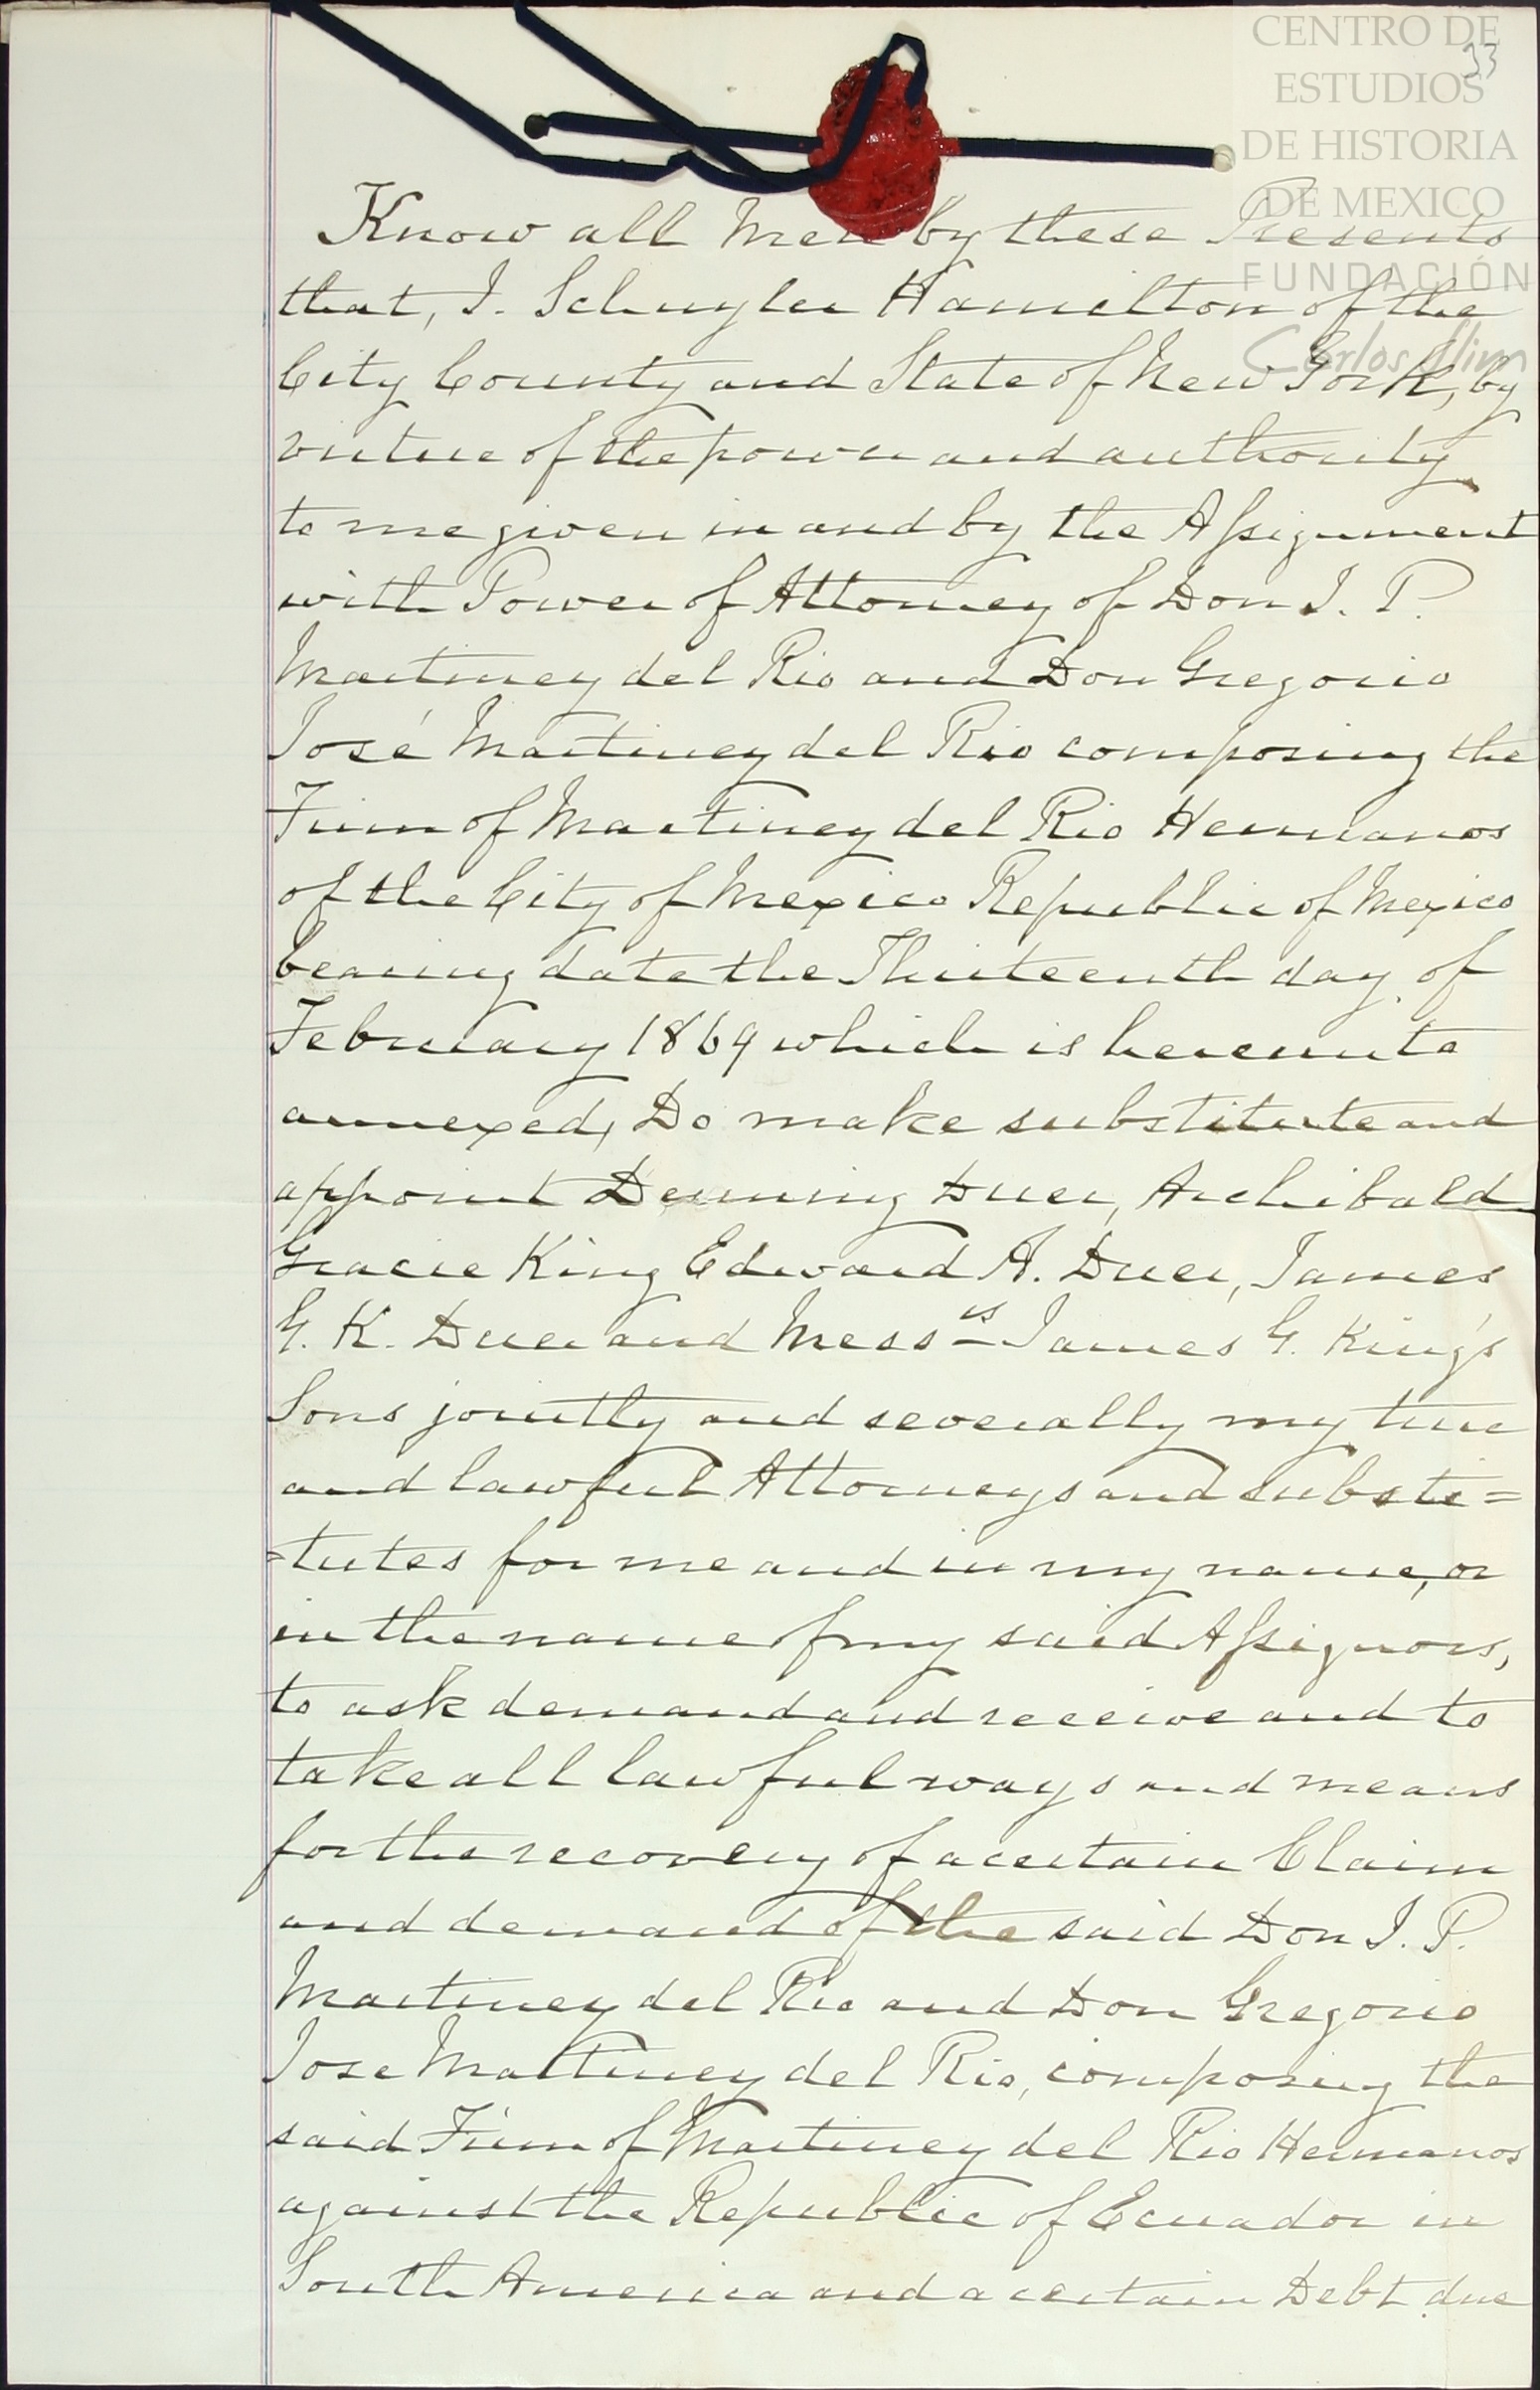 CENTRO DE
ESTUDIOS
DE HISTORIA
DE MEXICO
FUNDACIÓN
Carlos Slim
33
Know all Men by these Presents
that, I. Schuyler Hamilton of the
City County and State of New York, by
virtue of the power and authority
to me given in and by the Assignment
with Power of Attorney of Don J. P.
Martinez del Rio and Don Gregorio
José Martinez del Rio composing the
Firm of Martinez del Rio Hermanos
of the City of Mexico Republic of Mexico
bearing date the Thirteenth day of
February 1869 which is hereunto
annexed, Do make substitute and
appoint Denning Duer, Archibald
Gracie King Edward A. Duer, James
G. K. Duer and Messrs James G. King's
Sons jointly and severally my true
and lawful Attorneys and substi=
=tutes for me and in my name, or
in the name of my said Assignors,
to ask demand and receive and to
take all lawful ways and means
for the recovery of a certain Claim
and demand of the said Don J. P.
Martinez del Rio and Don Gregorio
Jose Martinez del Rio, composing the
said Firm of Martinez del Rio Hermanos
against the Republic of Ecuador in
South America and a certain Debt due